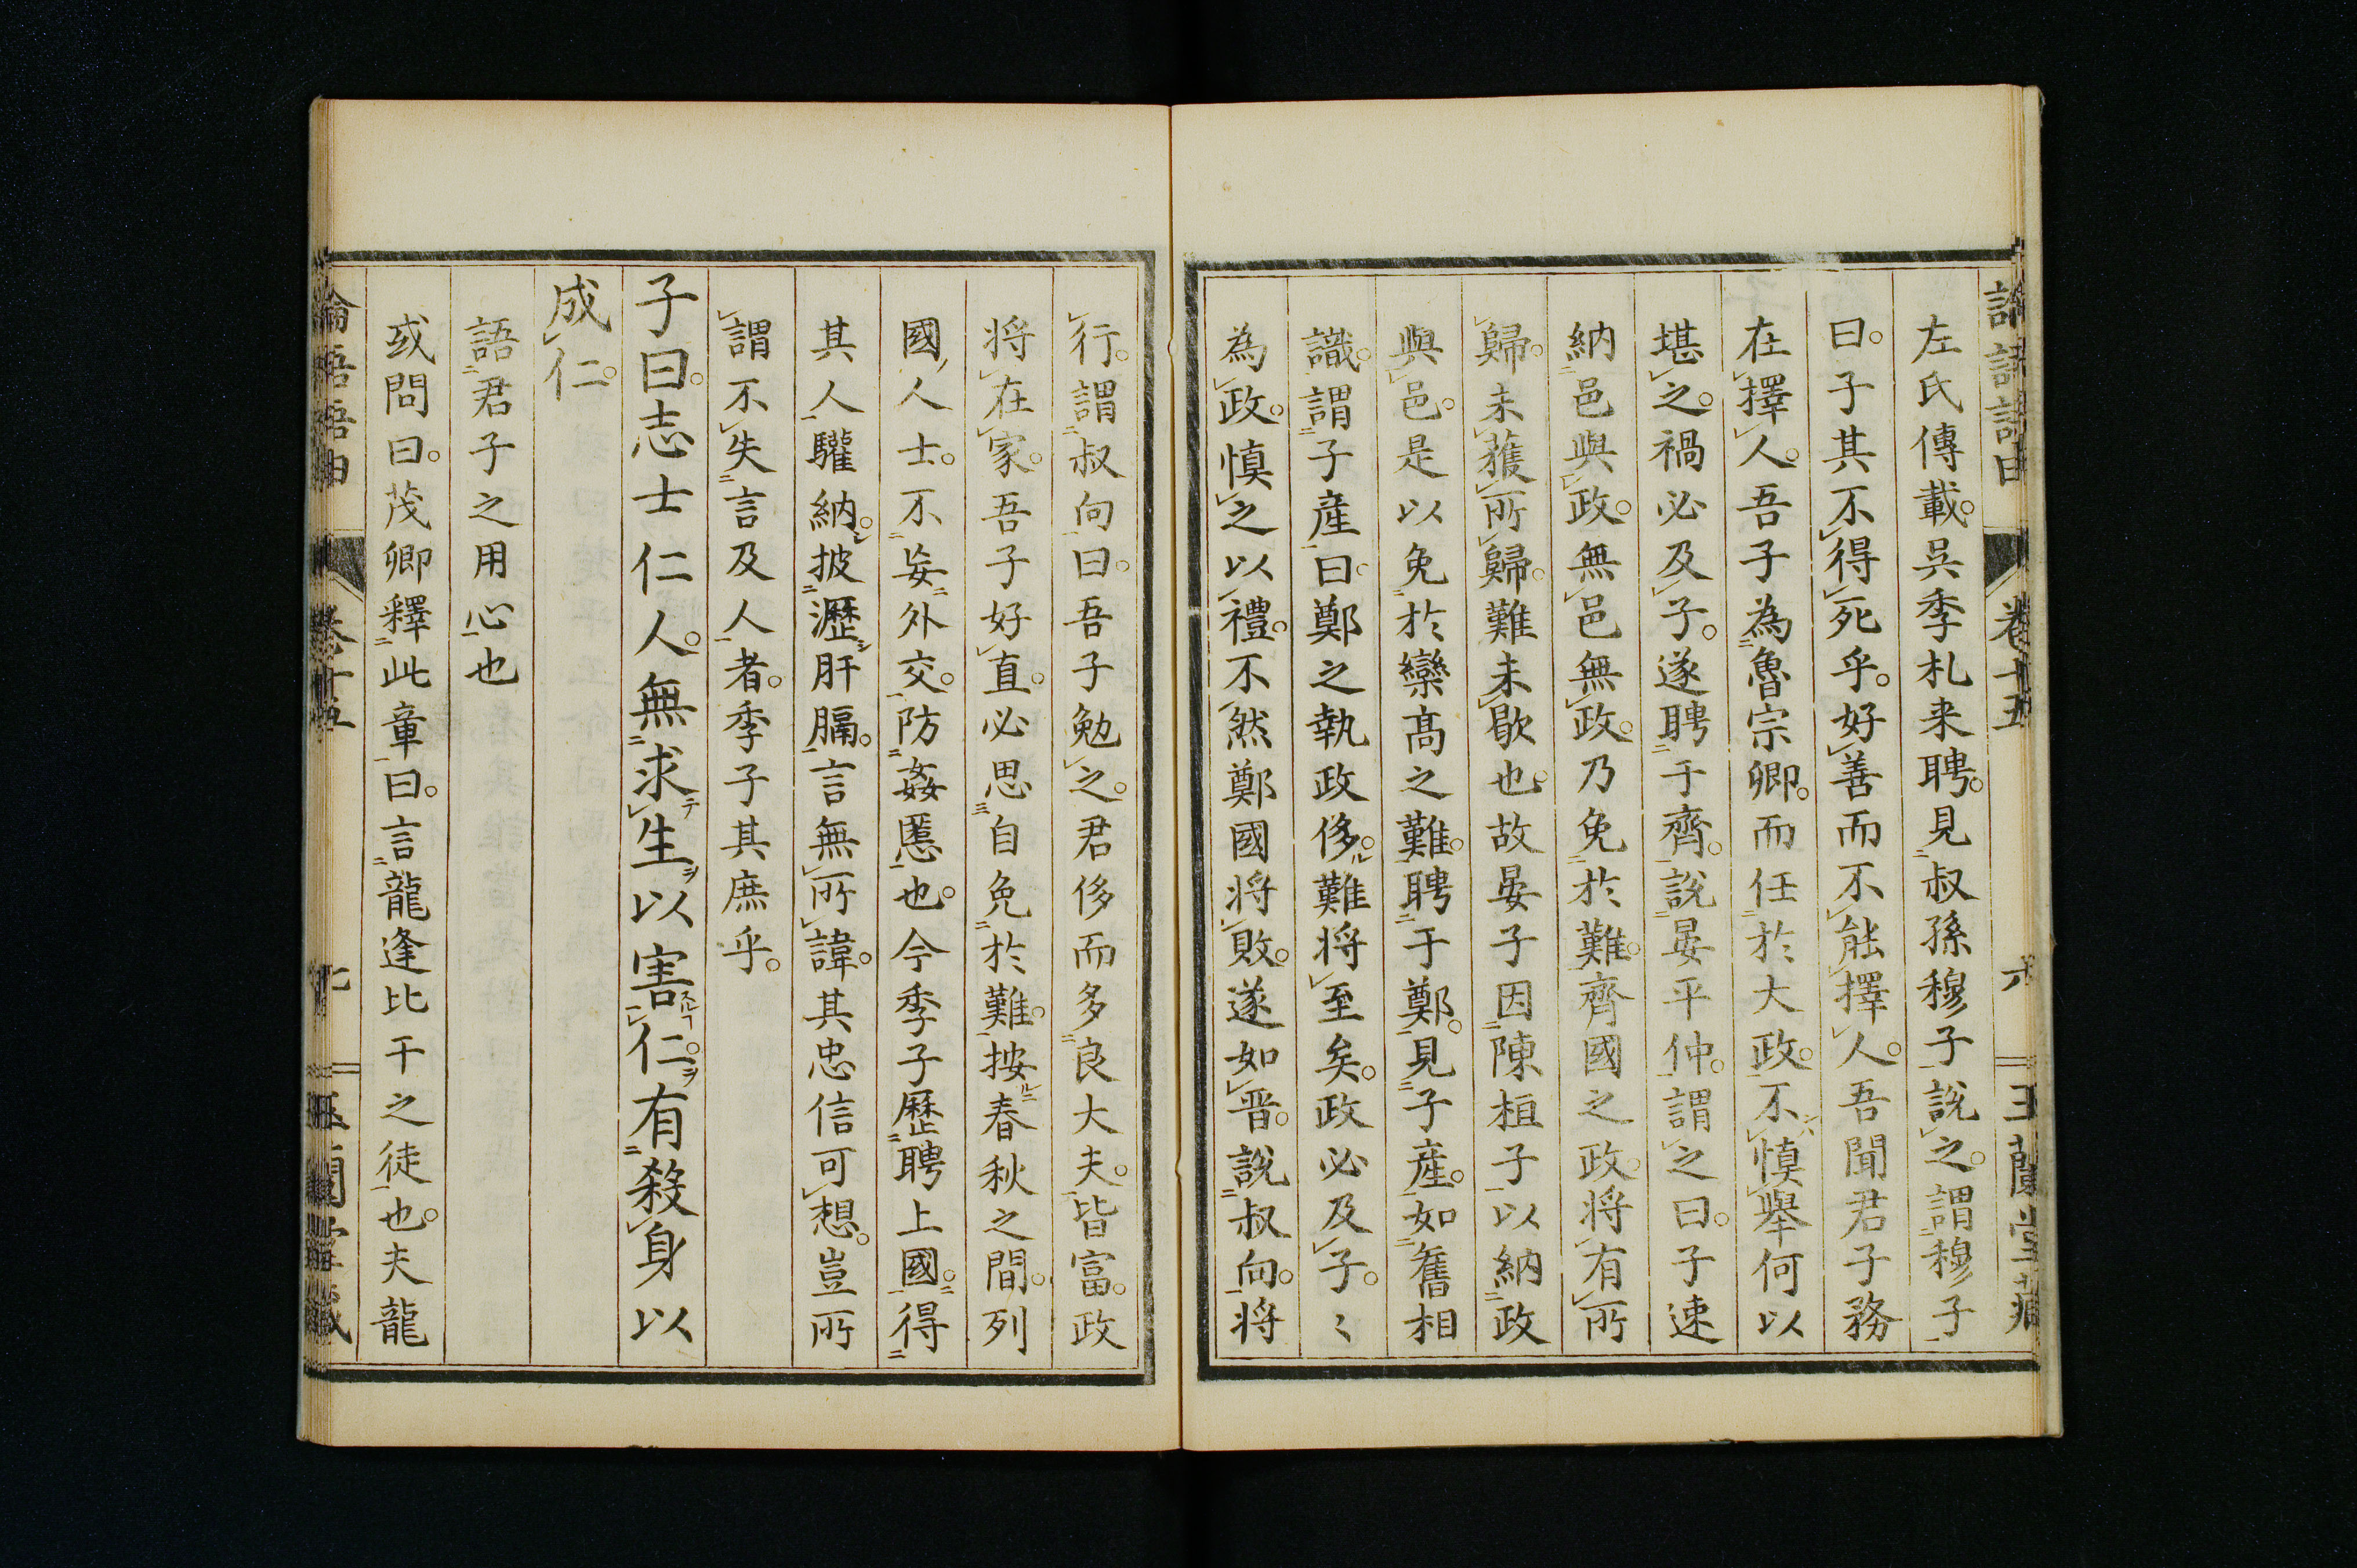 左氏傳載。吳季札来聘。見叔孫穆子說之。謂穆子
曰。子其不得死乎。好善而不能擇人。吾聞君子務
在擇人。吾子為魯宗卿。而任於大政。不慎舉何以
堪之。禍必及子。遂聘于齊。說晏平仲。謂之曰。子速
納邑與政。無邑無政。乃免於難。齊國之政。将有所
歸。未獲所歸。難未歇也。故晏子因陳桓子以納政
與邑。是以免於欒高之難。聘于鄭。見子產。如舊相
識。謂子產曰。鄭之執政侈。難将至矣。政必及子。〻
為政。慎之以禮。不然鄭國将敗。遂如晋。說叔向。将
行。謂叔向曰。吾子勉之。君侈而多良大夫。皆富。政
将在家。吾子好直。必思自免於難。按春秋之間。列
國人士。不妄外交。防姦慝也。今季子歷聘上國。得
其人驩納。披瀝肝膈。言無所諱。其忠信可想。豈所
謂不失言及人者。季子其庶乎。
子曰。志士仁人。無求生以害仁。有殺身以
成仁。
語君子之用心也
或問曰。茂卿釋此章曰。言龍逢比干之徒也。夫龍